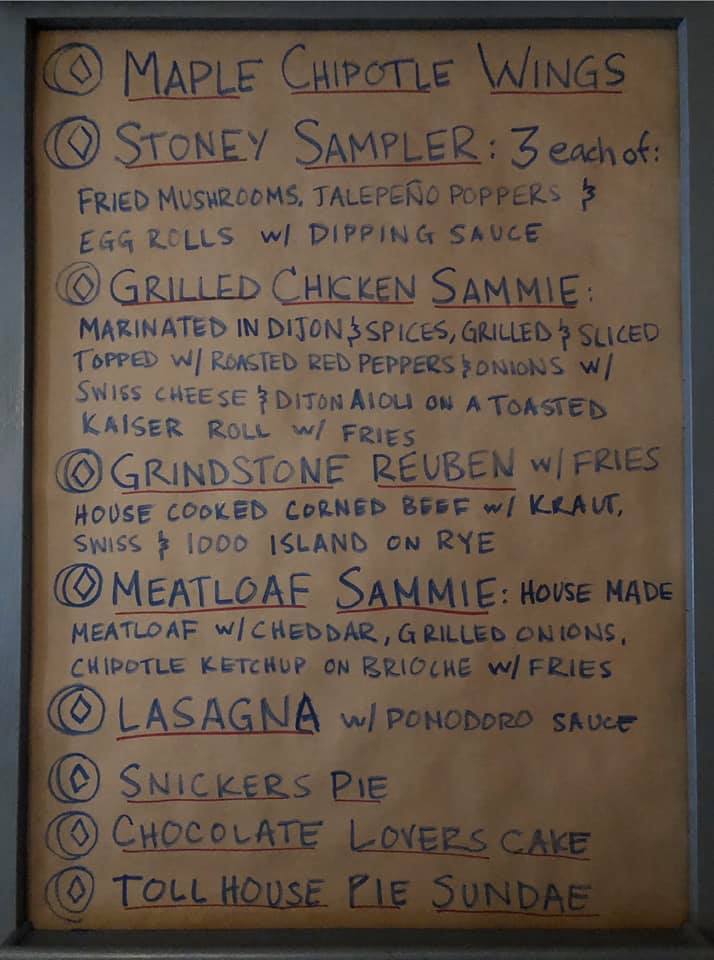 MAPLE CHIPOTLE WINGS
STONEY SAMPLER: 3 each of:
FRIED MUSHROOMS, JALEPEÑO POPPERS &
EGG ROLLS w/ DIPPING SAUCE
GRILLED CHICKEN SAMMIE:
MARINATED IN DIJON & SPICES, GRILLED & SLICED
TOPPED w/ ROASTED RED PEPPERS & ONIONS w/
SWISS CHEESE & DIJON AIOLI ON A TOASTED
KAISER ROLL w/ FRIES
GRINDSTONE REUBEN w/ FRIES
HOUSE COOKED CORNED BEEF w/ KRAUT,
SWISS & 1000 ISLAND ON RYE
MEATLOAF SAMMIE: HOUSE MADE
MEATLOAF w/ CHEDDAR, GRILLED ONIONS,
CHIPOTLE KETCHUP ON BRIOCHE w/ FRIES
LASAGNA w/ POMODORO SAUCE
SNICKERS PIE
CHOCOLATE LOVERS CAKE
TOLL HOUSE PIE SUNDAE